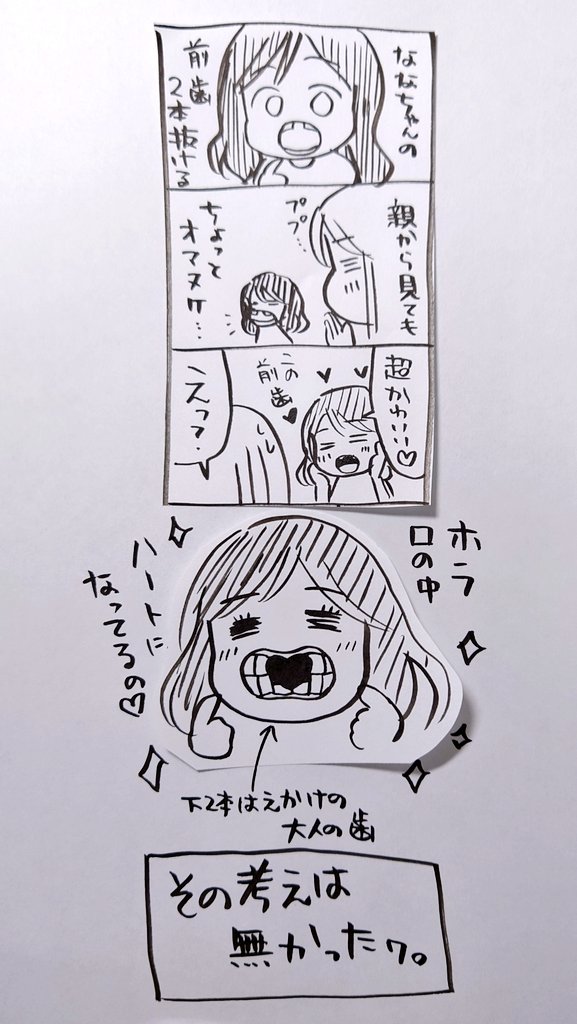 ななちゃんの
前歯
2本抜ける
親から見ても
ププ…
ちょっと
オマヌケ…
超かわいい♡
この
前歯
えって?
ホラ
口の中
ハートに
なってるの♡
下2本はえかけの
大人の歯
その考えは
無かったワ。